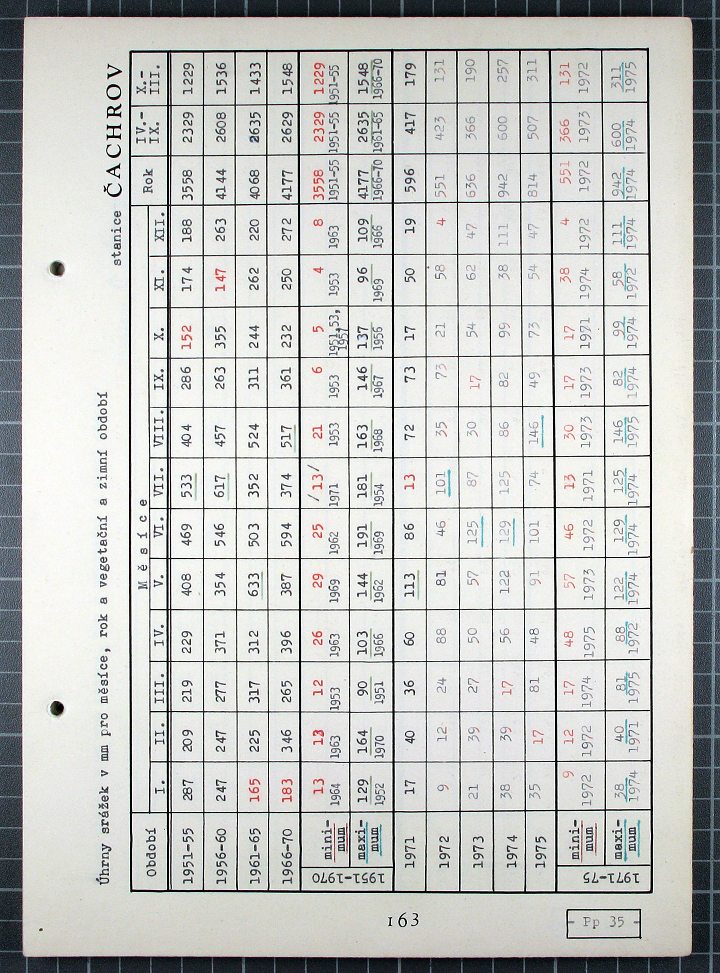 Úhrny srážek v mm pro měsíce, rok a vegetační a zimní období stanice ČACHROV
Období Měsíce Rok IV.-IX. X.-III.
I. II. III. IV. V. VI. VII. VIII. IX. X. XI. XII.
1951-55 287 209 219 229 408 469 533 404 286 152 174 188 3558 2329 1229
1956-60 247 247 277 371 354 546 617 457 263 355 147 263 4144 2608 1536
1961-65 165 225 317 312 633 503 352 524 311 244 262 220 4068 2635 1433
1966-70 183 346 265 396 387 594 374 517 361 232 250 272 4177 2629 1548
1951-1970
mini-mum 13 13 12 26 29 25 /13/ 21 6 5 4 8 3558 2329 1229
1964 1963 1953 1963 1969 1962 1971 1953 1953 1951,53, 1953 1963 1951-55 1951-55 1951-55
maxi-mum 129 164 90 103 144 191 181 163 146 137 96 109 4177 2635 1548
1952 1970 1951 1966 1962 1969 1954 1968 1967 1956 1969 1966 1966-70 1961-65 1966-70
1971 17 40 36 60 113 86 13 72 73 17 50 19 596 417 179
1972 9 12 24 88 81 46 101 35 73 21 58 4 551 423 131
1973 21 39 27 50 57 125 87 30 17 54 62 47 636 366 190
1974 38 39 17 56 122 129 125 86 82 99 38 111 942 600 257
1975 35 17 81 48 91 101 74 146 49 73 54 47 814 507 311
1971-75
mini-mum 9 12 17 48 57 46 13 30 17 17 38 4 551 366 131
1972 1972 1974 1975 1973 1972 1971 1973 1973 1971 1974 1972 1972 1973 1972
maxi-mum 38 40 81 88 122 129 125 146 82 99 58 111 942 600 311
1974 1971 1975 1972 1974 1974 1974 1975 1974 1974 1972 1974 1974 1974 1975
163
Pp 35